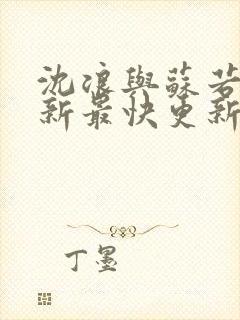 沈浪與蘇若
新最快更新
丁墨